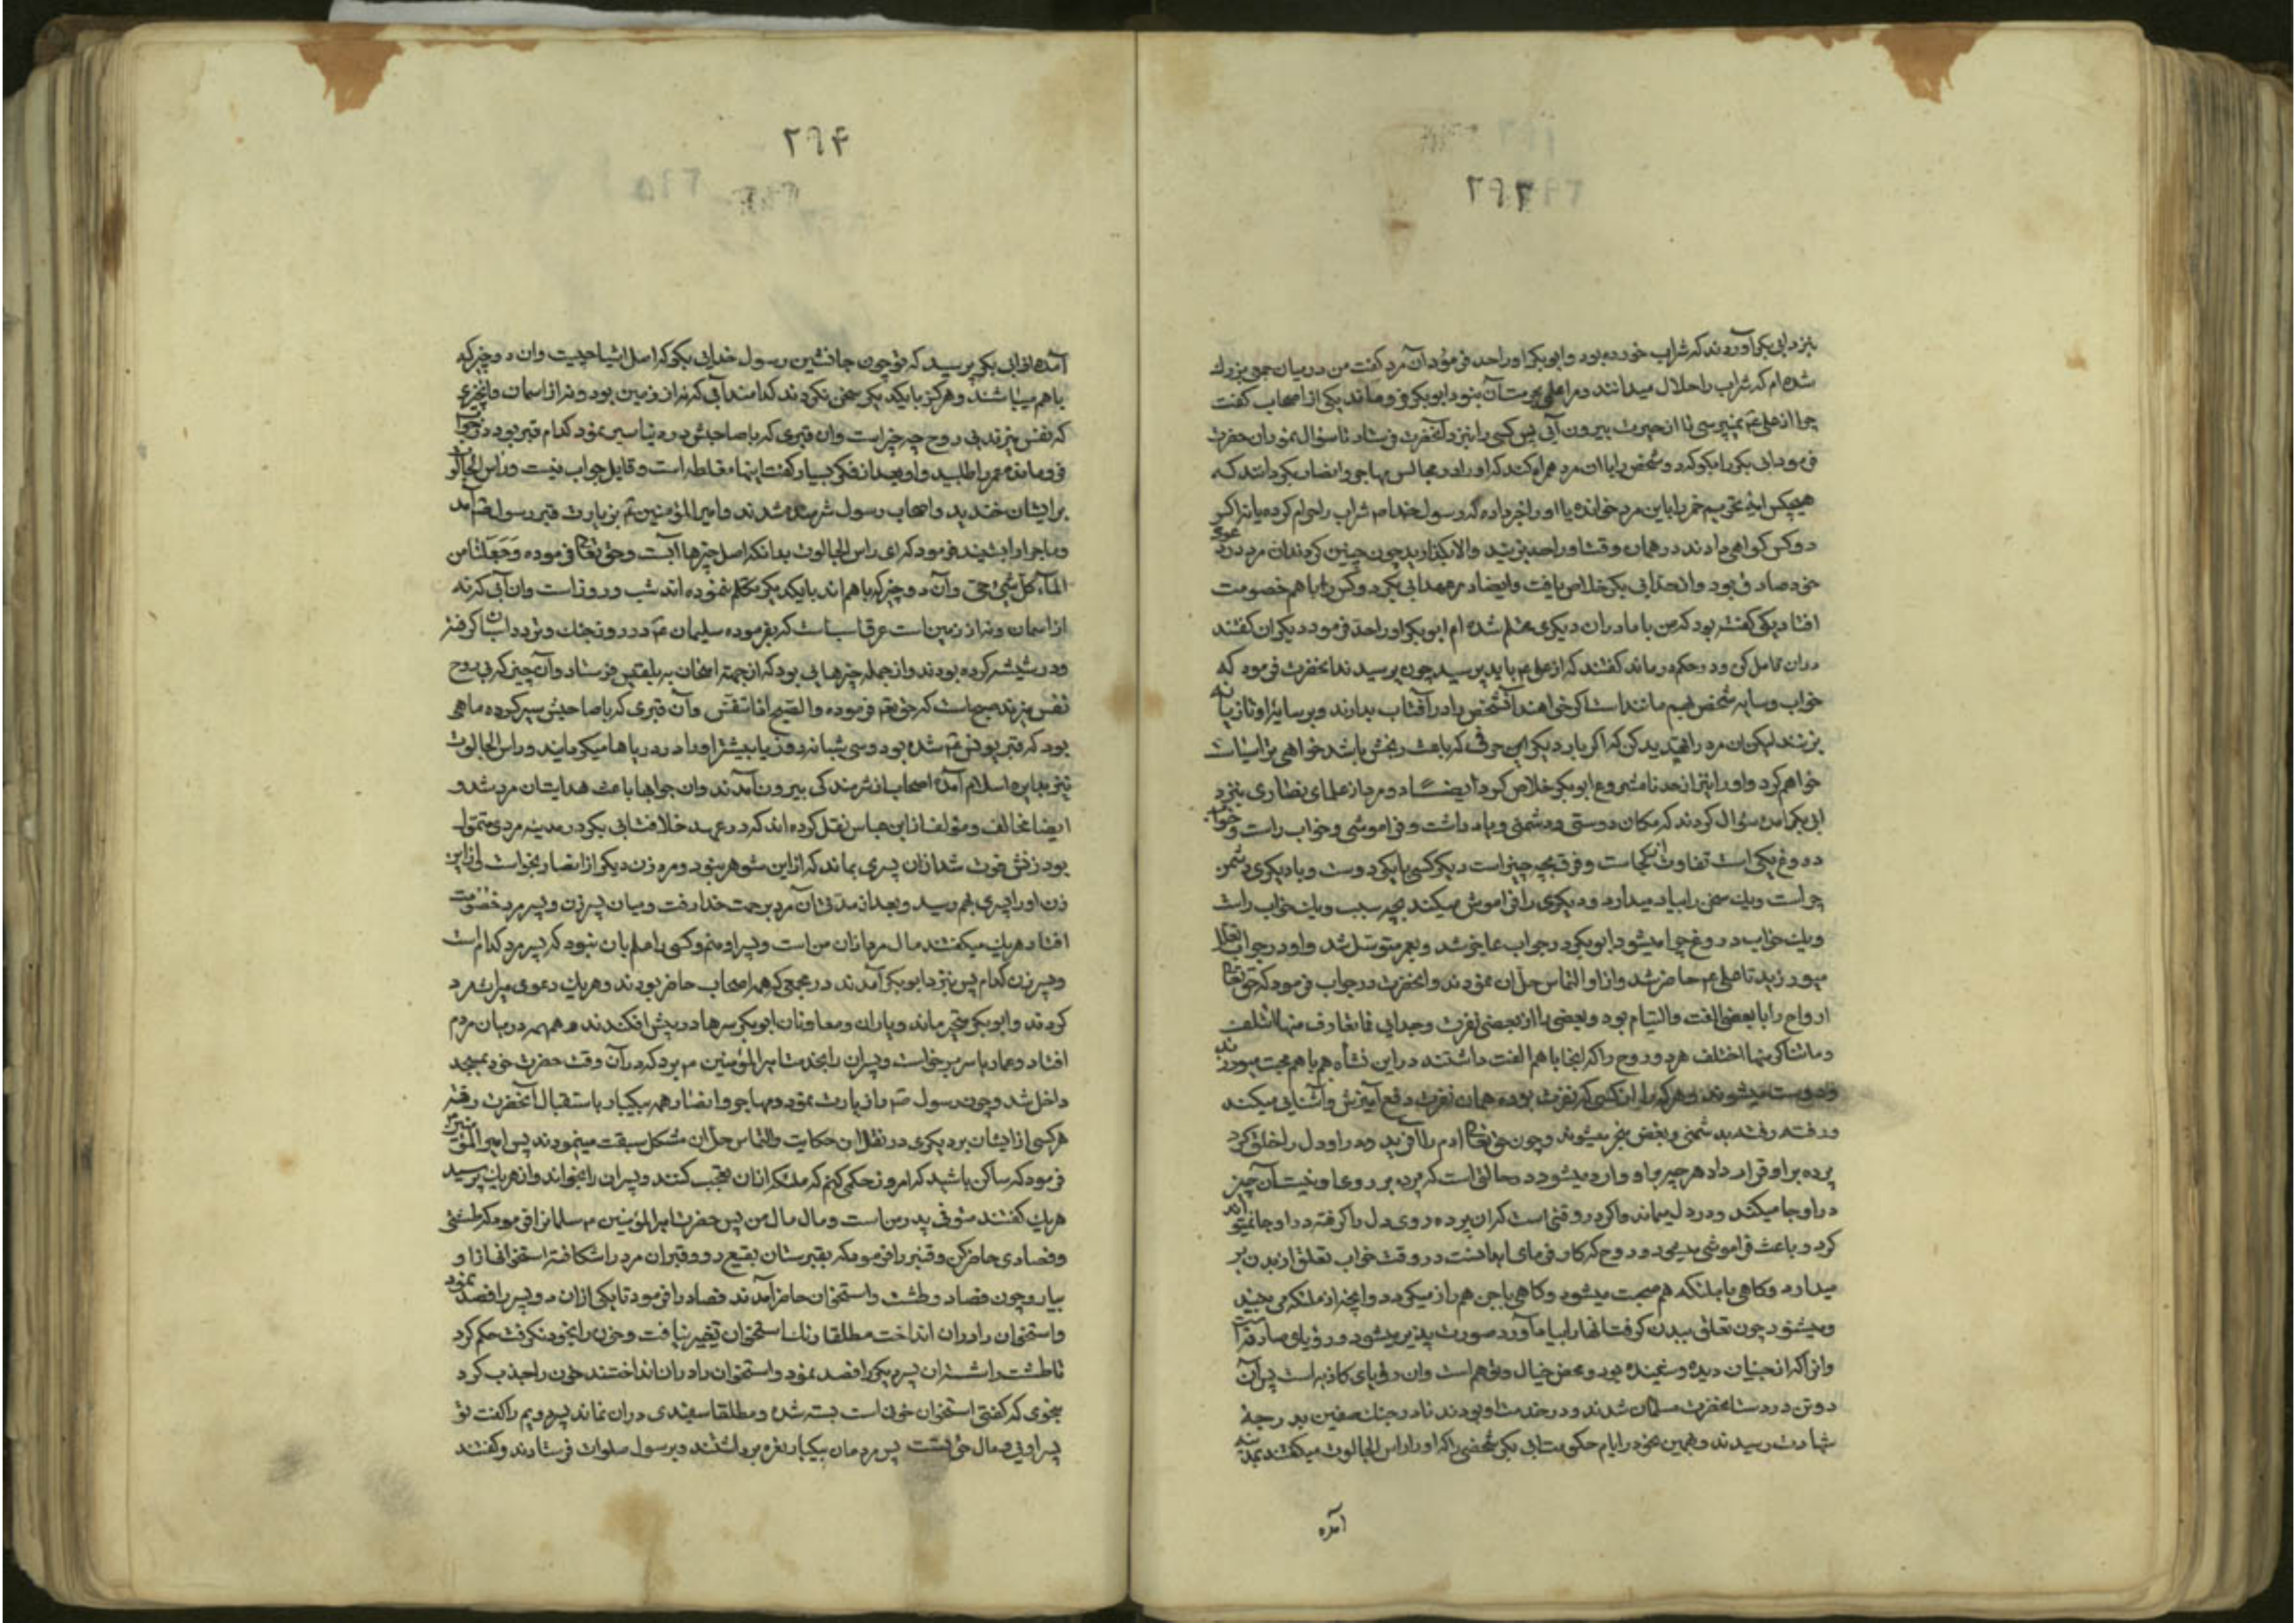 ۲۹۳
بنزد ابی بکر آوردند که شراب خورده بود و ابو بکر او را حد فرمود آن مرد گفت من در میان جمعی بزرك
شده ام که شراب را حلال میدانند و مرا علم بحرمت آن نبود ابو بکر فرو ماند یکی از اصحاب گفت
چرا از علی ع نمیپرسی تا از حیرت بیرون آیی پس کسی را بنزد آنحضرت فرستاد تا سؤال نمود آن حضرت
فرمود ابی بکر را بگو که دو شخص را با ان مرد همراه کند که او را در مجالس مهاجر و انصار بگردانند که
هیچکس آیه تحریم خمر را باین مرد خوانده یا او را خبر داده که رسول خدا ص شراب را حرام کرده یا نه اگر
دو کس گواهی دادند در همان وقت او را حد بزنید و الا بگذارید چون چنین کردند ان مرد در دعوی
خود صادق بود و از حد ابی بکر خلاص یافت و ایضا در عهد ابی بکر دو کس را با هم خصومت
افتاد یکی گفته بود که من با مادر ان دیگری محتلم شده ام ابو بکر او را حد فرمود دیگران گفتند
در ان تامل کن و در حکم در ماند گفتند که از علی ع باید پرسید چون پرسیدند انحضرت فرمود که
خواب و سایه شخص بهم مانند است اگر خواهند آنشخص را در آفتاب بدارند و بر سایه او تازیانه
بزنند لیکن ان مرد را تهدید کن که اگر بار دیگر این حرفی که باعث رنجش باشد خواهی زد اثبات
خواهم کرد و او را نیز از حد نامشروع ابو بکر خلاص کرد ایضــا دو مرد از علمای نصاری بنزد
ابی بکر آمده سؤال کردند که مکان دوستی و دشمنی و یاد داشت و فراموشی و خواب راست و خواب
دروغ یکی است تفاوت از کجاست و فرق بچه چیز است دیگر کسی با یکی دوست و با دیگری دشمن
چراست و یك سخن را بیاد میدارد و دیگری را فراموش میکند بچه سبب و یك خواب راست
و یك خواب دروغ چرا میشود ابو بکر در جواب عاجز شد و بعمر متوسل شد و او در جواب
میورزید تا علی ع حاضر شد و از او التماس حل آن نمودند و انحضرت در جواب فرمود که حق تعا
ارواح را با بعضی الفت و التیام بود و بعضی را از بعضی نفرت و جدایی فما تعارف منها ائتلف
و ما تناکر منها اختلف هر دو روح را که انجا با هم الفت داشتند در این نشأه هم با هم محبت میورزند
و دوست میشوند و هر که را از کسی که نفرت بوده همان نفرت دفع آمیزش و آشنایی میکند
و رفته رفته بدشمنی و بغض منجر میشود و چون حق تعا آدم را آفرید و در او دل را خلق کرد
پرده بر او قرار داد هر چه بر او وارد میشود در حالتی است که پرده بر
در او جا میکند و در دل میماند و اگر در وقتی است که ان پرده روی دل را گرفته در او جا نمیتواند
کرد و باعث فراموشی میشود و روح که کار فرمای ابدانست در وقت خواب تعلق از بدن بر
میدارد و گاهی با ملئکه هم صحبت میشود و گاهی با جن هم راز میگردد و آنچه از ملئکه می بیند
و میشنود چون تعلق ببدن گرفت انها را بیاد آورد صورت پذیر میشود و رؤیای صادقه آن
و انرا که از جنیان دیده و شنیده بود و محض خیال و توهم است و ان رؤیای کاذبه است پس آن
دو تن در دست انحضرت مسلمان شدند و در خدمت او بودند تا در جنك صفین بدرجهٔ
شهادت رسیدند و همچنین در ایام حکومت ابی بکر شخصی را که او را راس الجالوت میگفتند بمدینه
آمده
۲۹۴
آمده از ابی بکر پرسید که تو چون جانشین رسول خدایی بگو که اصل اشیا چیست و ان دو چیز که
با هم میباشند و هرگز با یکدیگر سخن نکردند کدامند آبی که نه از زمین بود و نه از اسمان و انچیزی
که نفس میزند بی روح چه چیز است و ان قبری که با صاحبش در دنیا سیر نمود کدام قبر بود در جواب
فرو مانده عمر را طلبید و او بعد از فکر بسیار گفت اینها مغلطه است و قابل جواب نیست و راس الجالوت
بر ایشان خندید و اصحاب رسول شرمنده شدند و امیر المؤمنین ع بزیارت قبر رسول ص آمد
و ماجرا را بشنید فرمود که ای راس الجالوت بدانکه اصل چیزها آبست و حق تعا فرموده وَجَعَلْنا من
المآء کل شیئ حی و آن دو چیز که با هم اند با یکدیگر تکلم ننموده اند شب و روز است و ان آبی که نه
از اسمان و نه از زمین است عرق اسب است که بفرموده سلیمان ع در روز جنك و تردد از اسبان گرفته
و در شیشه کرده بودند و از جمله چیزهایی بود که از جهة امتحان ببلقیس فرستاد و آن چیز که بی روح
نفس میزند صبح است که حق تعا فرموده والصبح اذا تنفس و آن قبری که با صاحبش سیر کرده ماهی
بود که قبر یونس ع شده بود و سی شبانه روز یا بیشتر او را در دریاها میگردانید و راس الجالوت
نیز بدایره اسلام آمده اصحاب از شرمندگی بیرون آمدند و ان جوابها باعث هدایت ان مرد شد و
ایضا مخالف و مؤلف از ابن عباس نقل کرده اند که در عهد خلافت ابی بکر در مدینه مردی متمول
بود زنش فوت شد از ان پسری بماند که از این شوهر بنود و مرد زن دیگر از انصار بخواست از این
زن او را پسری بهم رسید و بعد از مدتی آن مرد برحمت خدا رفت و میان پسر زن و پسر مرد خصومت
افتاد هر یك میگفتند مال مرد از ان من است و پسر او منم و کسی را علم بان نبود که پسر مرد کدام است
و پسر زن کدام پس بنزد ابو بکر آمدند در مجمعی که همه اصحاب حاضر بودند و هر یك دعوی میراث مرد
کردند و ابو بکر متحیر ماند و یاران و معاونان ابو بکر سرها در پیش افکندند و همهمه در میان مردم
افتاد و عمار یاسر برخاست و پسران را بخدمت امیر المؤمنین ع برد که در آن وقت حضرت خود بمسجد
داخل شد و چون رسول ص را زیارت نمود و مهاجر و انصار همه بیکبار باستقبال آنحضرت رفته
هر کسی از ایشان بر دیگری در نقل این حکایت و التماس حل آن مشکل سبقت مینمودند پس امیر المؤمنین
فرمود که ساکن باشید که امروز حکمی کنم که ملئکه از ان تعجب کنند و پسران را بخواند و از هر یك پرسید
هر یك گفتند متوفی پدر من است و مال مال من پس حضرت امیر المؤمنین ع سلمان را فرمود که طشتی
و فصادی حاضر کن و قنبر را فرمود که بقبرستان بقیع رو و قبر ان مرد را شکافته استخوانی از او
بیار و چون فصاد و طشت و استخوان حاضر آمدند فصاد را فرمود تا یکی از ان دو پسر را فصد نمود
و استخوان را در ان انداخت مطلقا رنك استخوان تغییر نیافت و خون را بخود نگرفت حکم کرد
تا طشت را شستند ان پسر دیگر را فصد نمود و استخوان را در ان انداختند خون را جذب کرد
بنحوی که گفتی استخوان خون است بسته شده و مطلقا سفیدی در ان نماند پسر دویم را گفت تو
پسر اویی و مال حق تست پس مردمان بیکبار نعره برداشتند و بر رسول صلوات فرستادند و گفتند